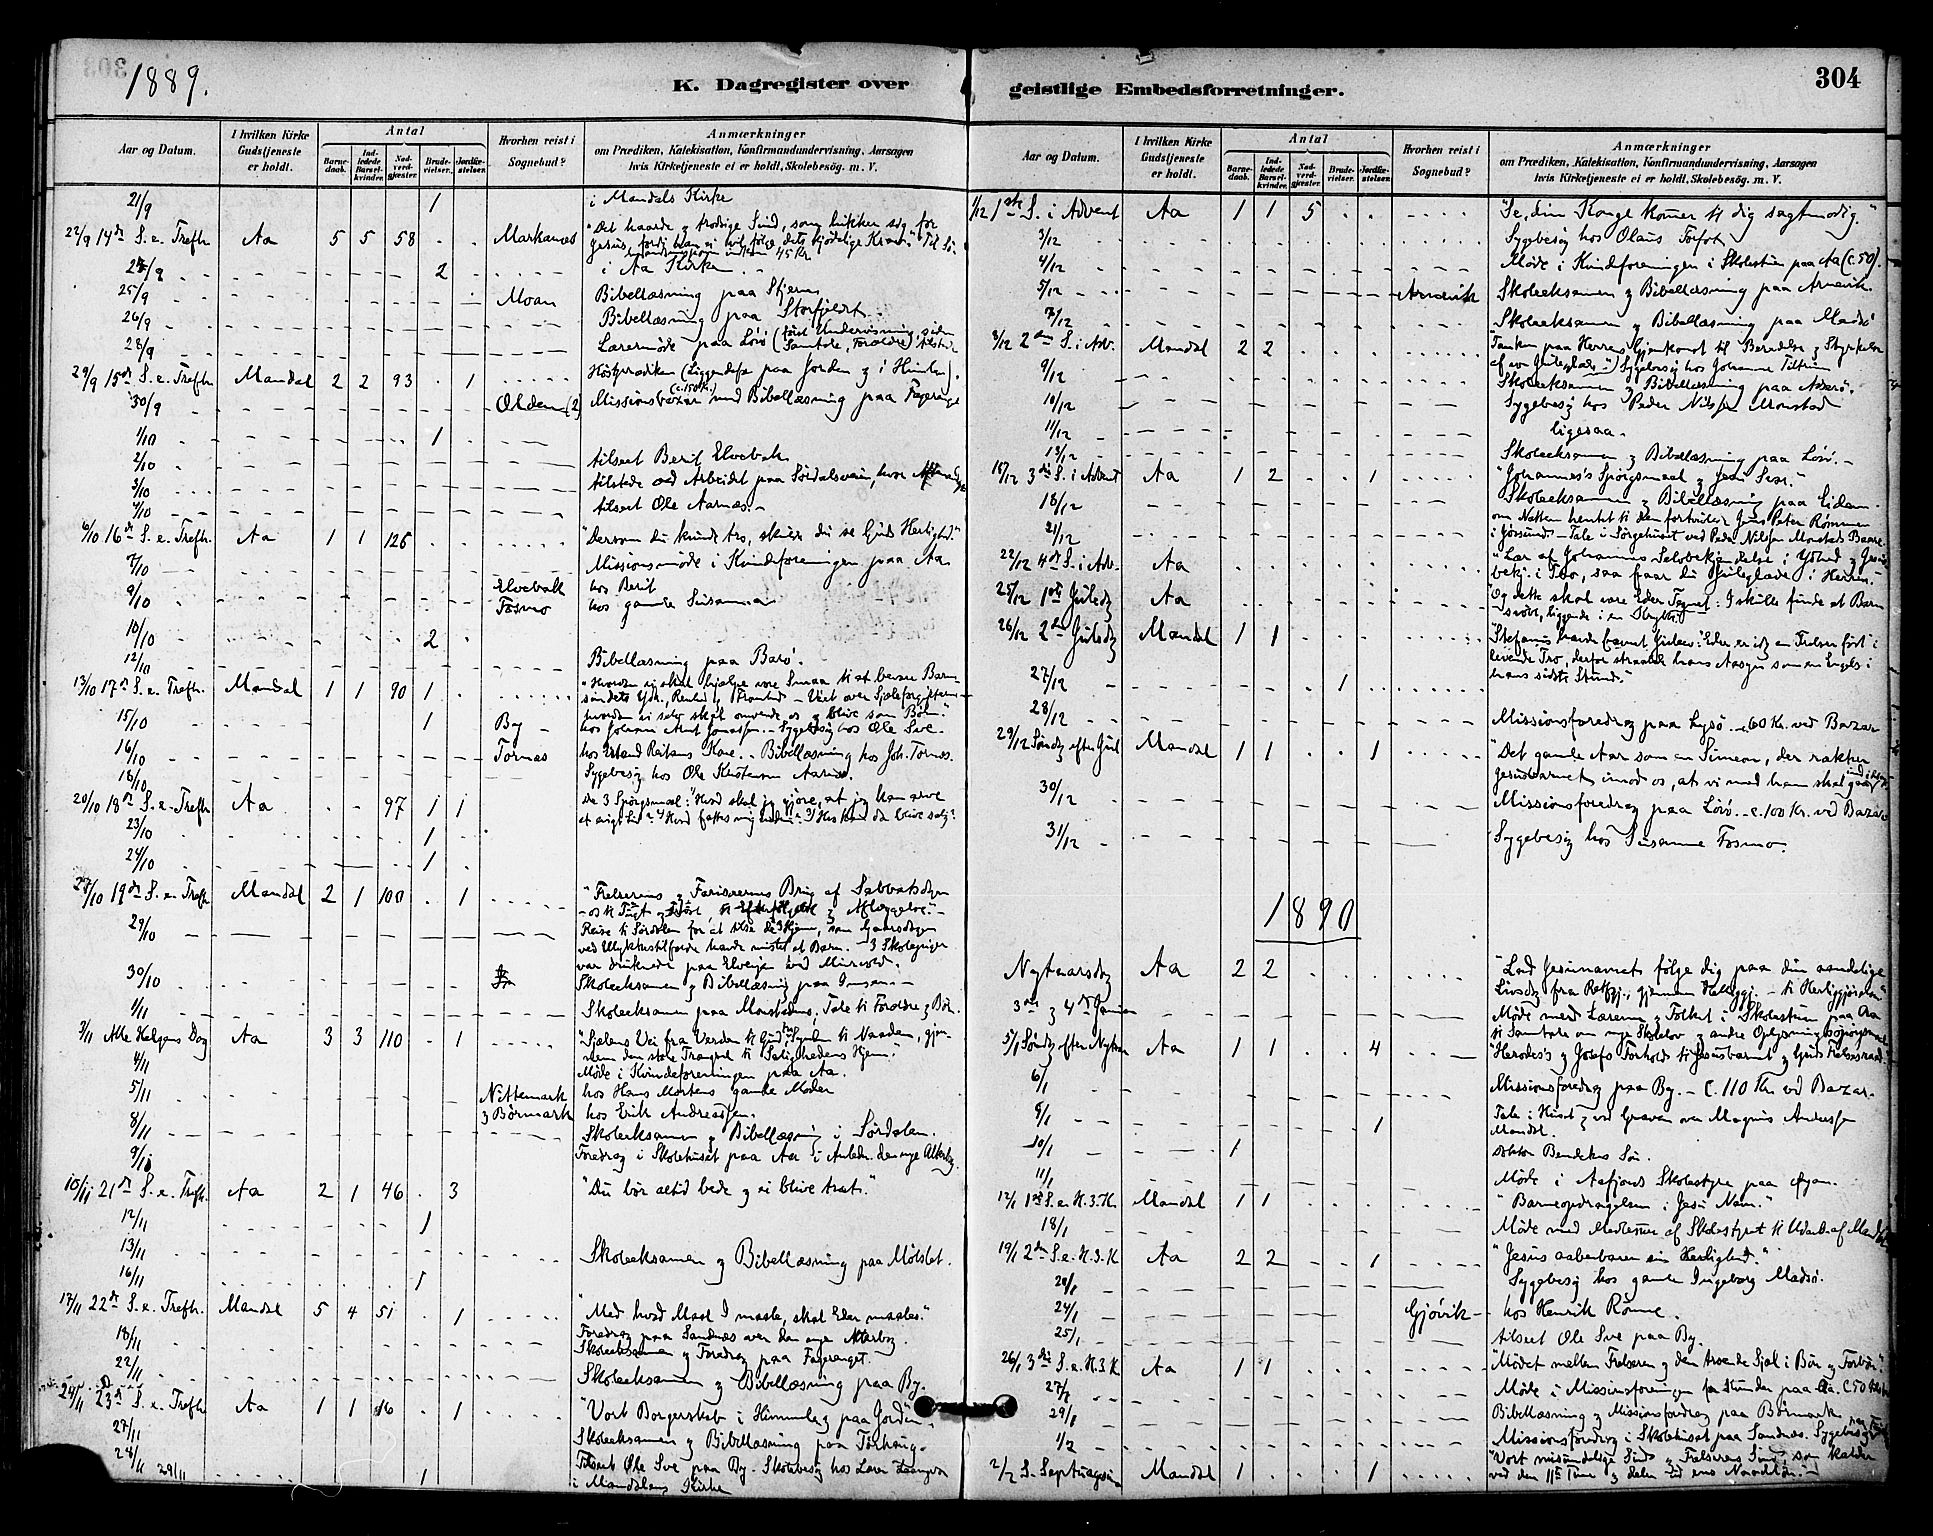 303
1889.
K. Dagregister over
Aar og Datum.
I hvilken Kirke Gudstjeneste er holdt.
Antal
Barnedaab.
Indledede Barselkvinder.
Nadverdgjæster.
Brudevielser.
Jordfæstelser.
Hvorhen reist i Sognebud?
Anmærkninger
om Prædiken, Katekisation, Konfirmandundervisning, Aarsagen
hvis Kirketjeneste ei er holdt, Skolebesøg. m. V.
21/9 1 i Mandals Kirke
22/9 14de S. e. Trefh. Aa 5 5 58 Markanes "Det haarde trodsige Sind, som lukker sig for
Jesus, fordi han ei vil følge dets kjødelige Krav."
24/9 2 i Aa Kirke
25/9 Moan Bibellæsning paa Stjern
26/9 Bibellæsning paa Storfjeldt
28/9 Lærermøde paa Løvø (først Undervisning, siden Samtale, Forældre tilstede
29/9 15de S. e. Trefh. Mandal 2 2 93 1 Høstprædiken (Liggendefæ paa Jorden og i Himlen).
30/9 Olden (2) Missionsbazar (c. 150 Kr.) med Bibellæsning paa Fagerange
1/10 1
2/10 tilseet Berit Elvebak
3/10 tilstede ved Arbeidet paa Sørdalsveien, hvor
4/10 tilseet Ole Aarnes.
6/10 16de S. e. Trefh. Aa 1 1 126 "Dersom du kunde tro, skulde du se Guds Herlighed."
7/10 Missionsmøde i Kvindeforeningen paa Aa
9/10 Elvebak hos Berit
Fosmo hos gamle Susanna
10/10 2
12/10 Bibellæsning paa Barø.
13/10 17de S. e. Trefh. Mandal 1 1 90 1 "Hvordan vi skal hjælpe vore Smaa til at bevare Barn-
hvordan vi selv skal omvende os og blive som Børn."
15/10 1 By hos Johan Arnt Jonassen. Sygebesøg hos Ole Sve.
16/10 Tørnes hos Erland Reitans Kone. Bibellæsning hos Joh. Tørnes.
18/10 Sygebesøg hos Ole Kristensen Aarnes.
20/10 18de S. e. Trefh. Aa 97 1 1 De 3 Spørgsmaal: "Hvad skal jeg gjøre, at jeg kan arve
et evigt Liv 2) Hvad fattes mig endnu 3) Hvo kan da blive salig?
23/10 1
24/10 1
27/10 19de S. e. Trefh. Mandal 2 1 100 1 "Frelserens og Farisæernes Brug af Sabbatsdagen
29/10 Reise til Sørdalen for at
ved Ulykkestilfælde havde mistet et Barn. 3 Skolepiger
var druknede paa Elveisen ved Mirvold.
30/10 Skoleeksamen og Bibellæsning paa
1/11 Skoleeksamen paa Monstadens. Tale til Forældre og Børn.
3/11 Alle Helgens Dag Aa 3 3 110 1 "Sjælens Vei fra Verden til Gud, fra Synden til Naaden, gjen-
nem den store Trængsel til Salighedens Hjem.
4/11 Møde i Kvindeforeningen paa Aa.
5/11 Nittemark hos Hans Mortens gamle Moder
& Børmark hos Erik Andreassen.
8/11 Skoleeksamen og Bibellæsning i Sørdalen.
9/11 Foredrag i Skolehuset paa Aa i Anledn. den nye Alterbog.
10/11 21de S. e. Trefh. Aa 2 1 46 3 "Du bør altid bede og ei blive træt."
12/11 1
13/11 Skoleeksamen og Bibellæsning paa Mølslet.
16/11 1
17/11 22de S. e. Trefh. Mandal 5 4 51 1 "Med hvad Maal I maale, skal Eder maales."
Foredrag paa Sandnes over den nye Alterbog.
18/11 Skoleeksamen og Foredrag paa Fagerænget.
22/11 Skoleeksamen og Bibellæsning paa By.
24/11 23de S. e. Trefh. Aa 1 1 16 1 "Vort Borgerskab i Himmel og paa Jorden."
27/11 Skoleeksamen og Bibellæsning paa Tørhaug.
28/11 Tilseet Ole Sve paa By. Skolebesøg hos Lærer
29/11 1 i Mandalens Kirke
geistlige Embedsforretninger.
304
Aar og Datum.
I hvilken Kirke Gudstjeneste er holdt.
Antal
Barnedaab.
Indledede Barselkvinder.
Nadverdgjæster.
Brudevielser.
Jordfæstelser.
Hvorhen reist i Sognebud?
Anmærkninger
om Prædiken, Katekisation, Konfirmandundervisning, Aarsagen
hvis Kirketjeneste ei er holdt, Skolebesøg. m. V.
1/12 1ste S. i Advent Aa 1 1 5 "Se, din Konge kommer til dig sagtmodig."
3/12 Sygebesøg hos Olaus Forfot
4/12 Møde i Kvindeforeningen i Skolestuen paa Aa (c. 50).
5/12 Arnevik Skoleeksamen og Bibellæsning paa Arnevik.
7/12 Skoleeksamen og Bibellæsning paa Madsø
8/12 2den S. i Adv. Mandal 2 2 Tanken paa Herrens Gjenkomst til Beredelse og Styrkelse
af vor Juleglæde." Sygebesøg hos Johanna Tiltrem
9/12 Skoleeksamen og Bibellæsning paa
10/12 Sygebesøg hos Peder Nilssen Monstad
11/12 ligesaa.
13/12 Skoleeksamen og Bibellæsning paa Løvø.
15/12 3die S. i Advent Aa 1 2 1 "Johannes's Spørgsmaal og Jesu Svar."
18/12 Skoleeksamen og Bibellæsning paa Eidem.
om Natten hentet til den fortvilede Jens Peter Rømmen
21/12 i Gjøssund. Tale i Sørgehuset ved Peder Nilssen Monstads Baare.
22/12 4de S. i Adv. Aa "Lær af Johannes Selvbekjendelse i Ydmyghed og Jesus-
bekj. i Tro, saa faar du Juleglæde i Herren.
25/12 1ste Juledag Aa "Og dette skal være Eder Tegnet: I skulle finde et Barn
svøbt, liggende i en Krybbe."
26/12 2den Juledag Mandal 1 1 "Stefanus havde favnet Julens: "Eder er idag en Frelser født" i
levende Tro, derfor straalede hans Aasyn som en Engels i
hans sidste Stund."
27/12 1
28/12 Missionsforedrag paa Lysø. c. 60 Kr. ved Bazar
29/12 Søndag efter Jul Mandal 1 1 1 "Det gamle Aar som en Simeon, der rækker
Jesusbarnet imod os, at vi med ham skal gaa
30/12 Missionsforedrag paa Løvø. c. 100 Kr. ved Bazar
31/12 Sygebesøg hos Susanna Fosmo.
1890
Nytaarsdag Aa 2 2 "Lad Jesunavnet følge dig paa din aandelige
Livsdag fra Retfgj., gjennem Helliggj. til Herliggjørelsen"
3die & 4de Januar Møde med Lærerne og Folket i Skolestuen paa Aa
til Samtale om nye Skolelov og andre
5/1 Søndag efter Nytaar Aa 1 1 4 "Herodes's og Josefs Forhold til Jesusbarnet og Guds Frelsesraad.
6/1 Missionsforedrag paa By. C. 110 Kr. ved Bazar.
9/1 1 Tale i Huset og ved Graven over Magnus Anderssen
Mandal.
10/1 1 Doktor Bendekes Søn.
11/1 Møde i Aafjords Skolestyre paa Øyan.
12/1 1ste S. e. H. 3. K. Mandal 1 1 "Barneopdragelsen i Jesu Navn."
18/1 Møde med Medlemmer af Skolestyret til Udarb. af
19/1 2den S. e. H. 3. K Aa 2 2 1 "Jesus aabenbarer sin Herlighed."
20/1 Sygebesøg hos gamle Ingeborg Madsø.
24/1 Gjøvik hos Henrik Rønne.
25/1 tilseet Ole Sve paa By.
26/1 3die S. e. H. 3 K Aa 1 1 "Mødet mellem Frelseren og den troende Sjæl i Bøn og Forbøn."
27/1 Møde i Missionsforeningen for Kvinder paa Aa. C. 50
29/1 Bibellæsning og Missionsforedrag paa Børmark
1/2 Missionsforedrag i Skolehuset paa Sandnes. Sygebesøg
2/2 S. Septuagesima Mandal 1 1 "Vort misundelige Sind og Frelserens Sind, som kalder
ved den 11te Time og deler ud ens Naadeløn."